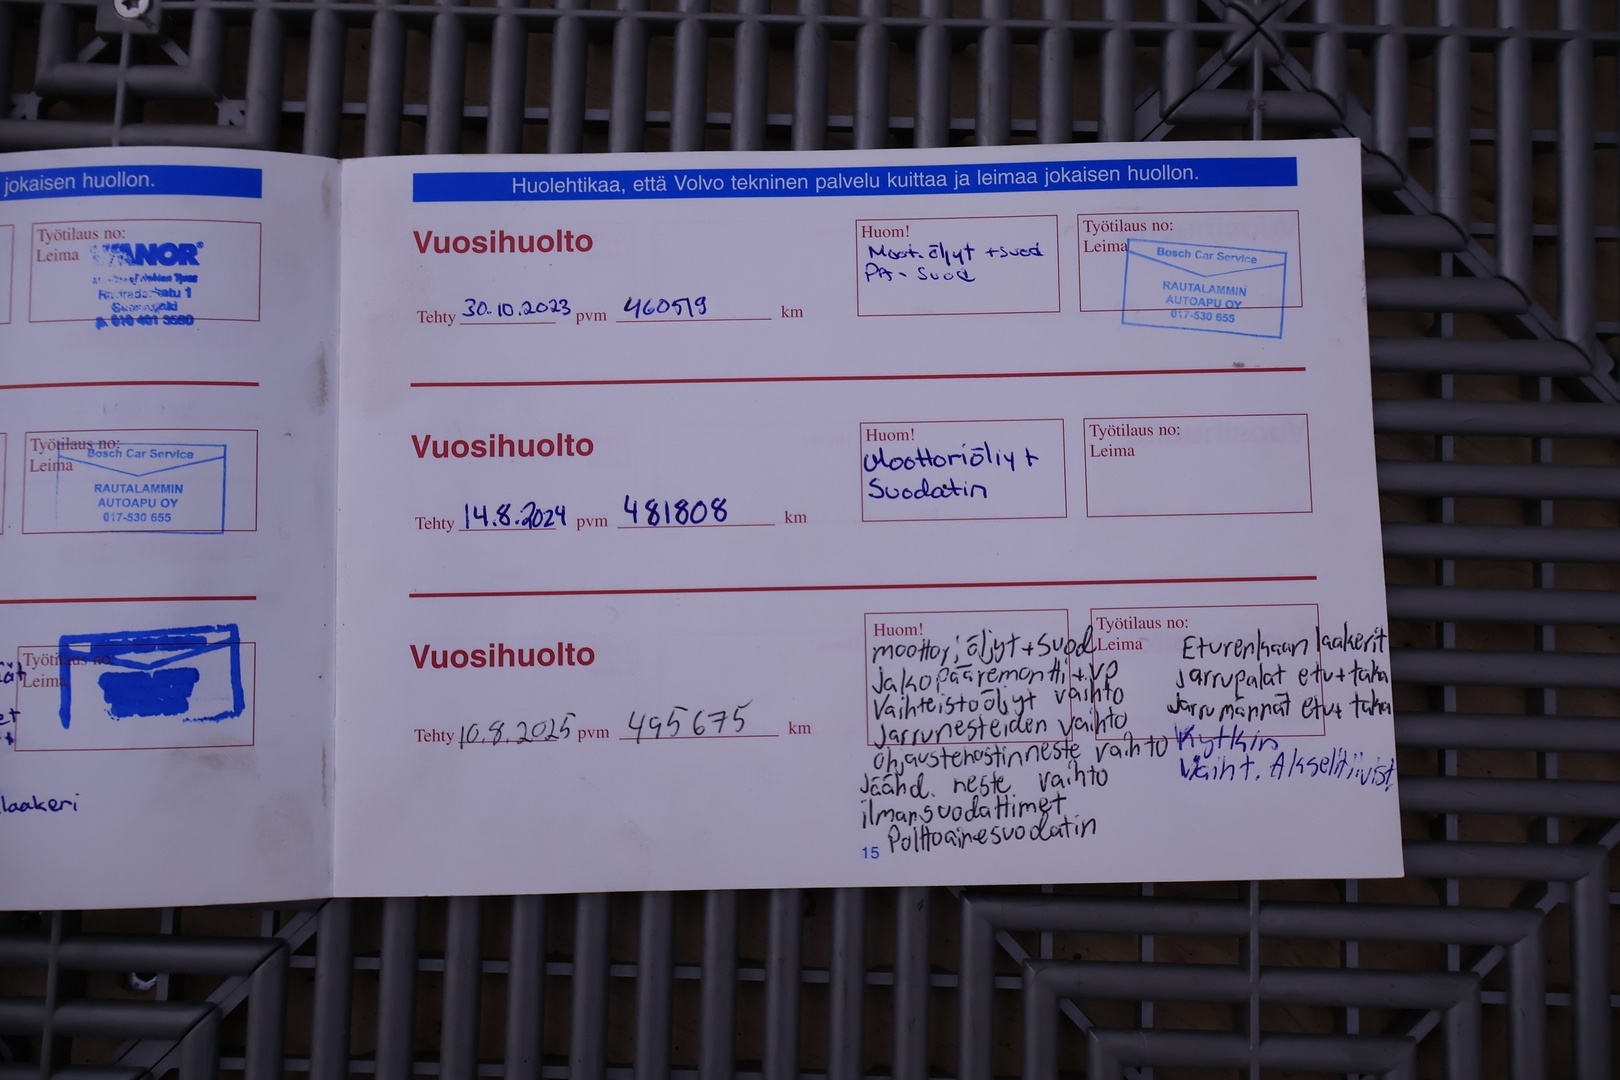 jokaisen huollon.
Työtilaus no:
Leima
VIANOR
p. 010 401 3580
Työtilaus no:
Leima
Bosch Car Service
RAUTALAMMIN
AUTOAPU OY
017-530 655
Työtilaus no:
Leima
laakeri
Huolehtikaa, että Volvo tekninen palvelu kuittaa ja leimaa jokaisen huollon.
Vuosihuolto
Tehty 30.10.2023 pvm 460519 km
Huom!
Moot.öljyt +suod
PA-Suod
Työtilaus no:
Leima
Bosch Car Service
RAUTALAMMIN
AUTOAPU OY
017-530 655
Vuosihuolto
Tehty 14.8.2024 pvm 481808 km
Huom!
Moottoriöljy+
Suodatin
Työtilaus no:
Leima
Vuosihuolto
Tehty 10.8.2025 pvm 495675 km
Huom!
moottoriöljyt+suod
Jakopääremontti+vp
Vaihteistoöljyt vaihto
Jarrunesteiden vaihto
ohjaustehostinneste vaihto
Jäähd. neste vaihto
ilmansuodattimet
Polttoainesuodatin
Työtilaus no:
Leima
Eturenkaan laakerit
Jarrupalat etu+taka
Jarrumännät etu+taka
Kytkin
Vaiht. Akselitiivist.
15